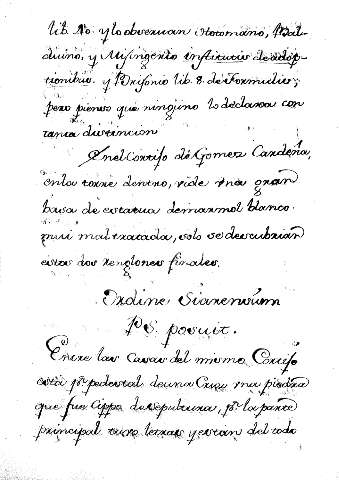 lib. 10. y lo observan Hotomano, Bal-
duino, y Misingerio institutis de adop-
tionibus. y Brisonio lib. 8. de Formulis;
pero pienso que ninguno lo declara con
tanta distincion
En el Cortijo de Gomez Cardeña,
en la torre dentro, vide una gran
basa de estatua de marmol blanco
mui mal tratada, solo se descubrian
estos dos renglones finales.
Ordine Siarensium
PS. posuit.
Entre las casas del mismo Cortijo
está pr. pedestal de una Cruz una piedra
que fue Cippo de sepultura, pr. la parte
principal tuvo letras y estan del todo